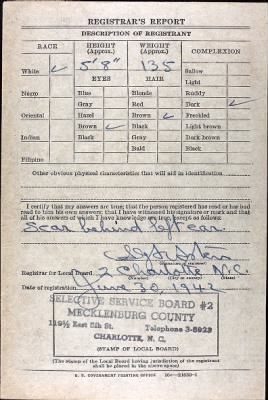 REGISTRAR'S REPORT
DESCRIPTION OF REGISTRANT
RACE HEIGHT (Approx.) WEIGHT (Approx.) COMPLEXION
White ✓ 5' 8" 135 Sallow
EYES HAIR Light
Negro Blue Blonde Ruddy
Gray Red Dark ✓
Oriental Hazel Brown ✓ Freckled
Brown ✓ Black Light brown
Indian Black Gray Dark brown
Bald Black
Filipino
Other obvious physical characteristics that will aid in identification
I certify that my answers are true; that the person registered has read or has had
read to him his own answers; that I have witnessed his signature or mark and that
all of his answers of which I have knowledge are true, except as follows:
Scar behind left ear.
Registrar for Local Board 2 Charlotte N.C.
(Number) (City or county) (State)
Date of registration June 30, 1942
SELECTIVE SERVICE BOARD #2
MECKLENBURG COUNTY
119½ East 5th St. Telephone 3-8929
CHARLOTTE, N. C.
(STAMP OF LOCAL BOARD)
(The stamp of the Local Board having jurisdiction of the registrant
shall be placed in the above space)
U. S. GOVERNMENT PRINTING OFFICE